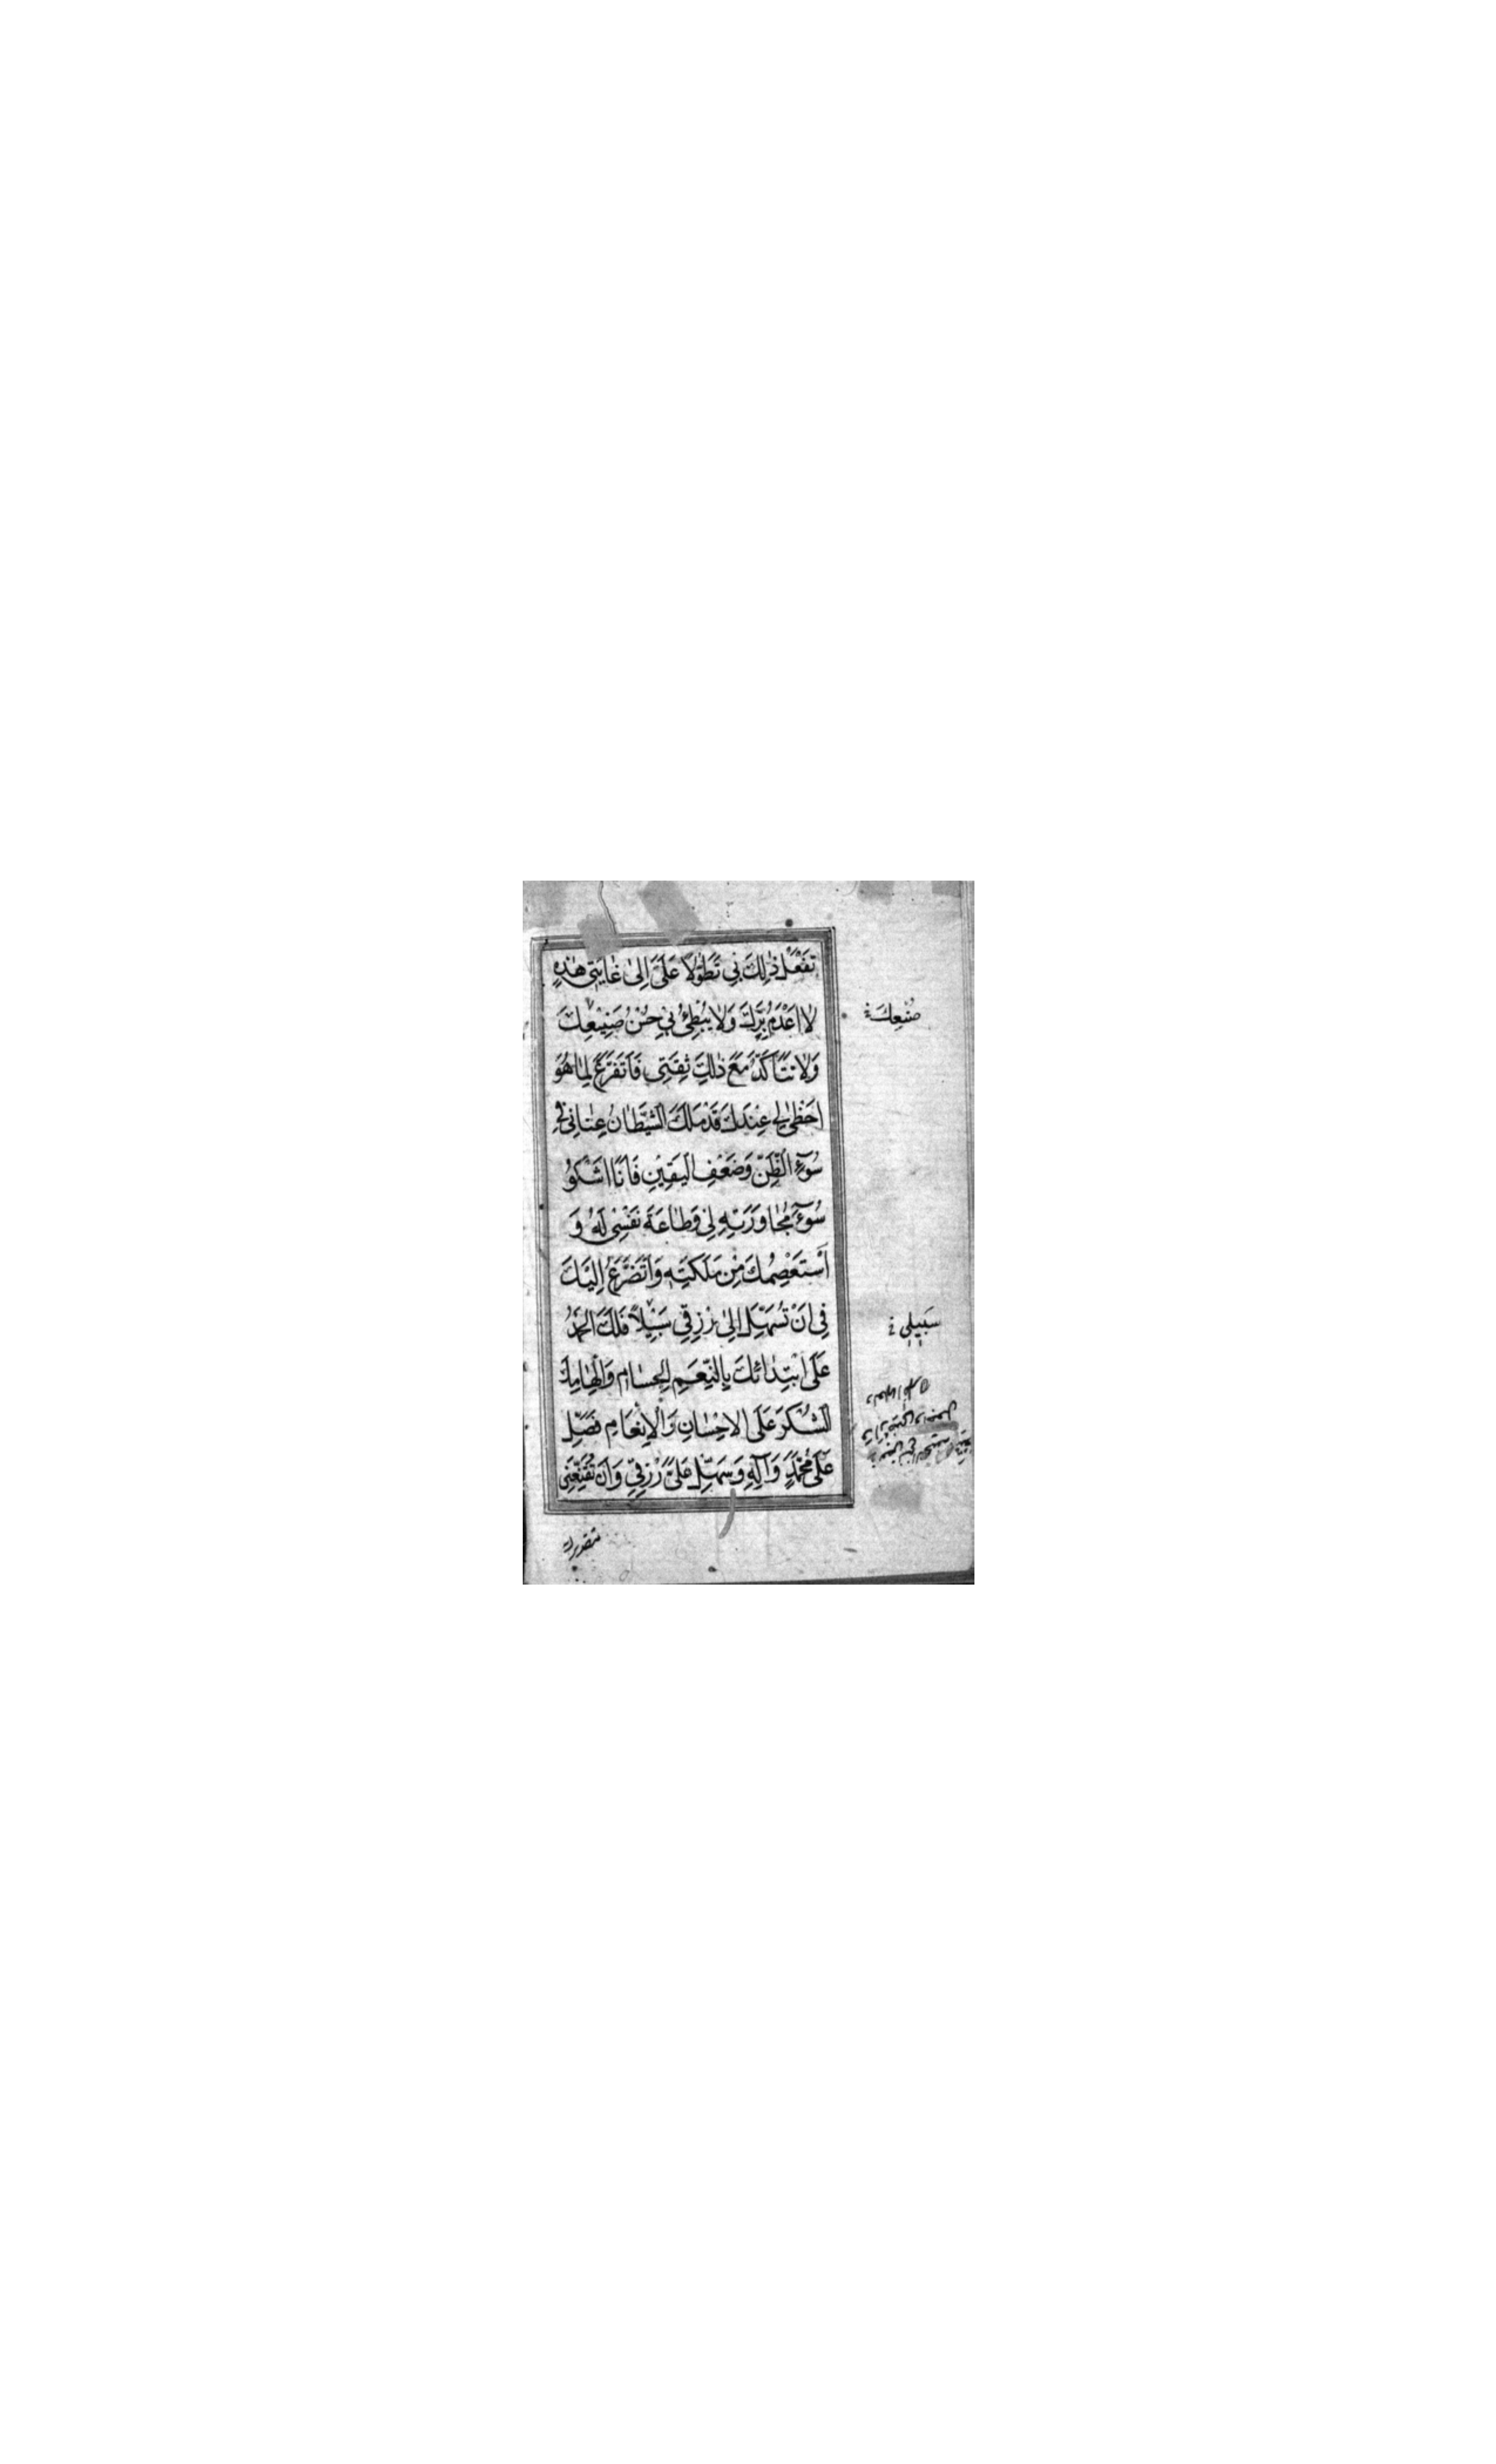 تَفْعَلُ ذٰلِكَ بِي تَطَوُّلاً عَلَيَّ اِلىٰ غٰايَتِي هٰذِهِ
لاٰ اَعْدَمُ بِرَّكَ وَلاٰ يُبْطِئُ بِي حُسْنُ صَنِيْعِكَ
وَلاٰ تَتَاَكَّدُ مَعَ ذٰلِكَ ثِقَتِي فَاَتَفَرَّغَ لِمٰا هُوَ
اَحْظىٰ لِي عِنْدَكَ قَدْ مَلَكَ الشَّيْطٰانُ عِنٰانِي فِي
سُوٓءِ الظَّنِّ وَضَعْفِ الْيَقِيْنِ فَاَنَا اَشْكُوُ
سُوٓءَ مُجٰاوَرَتِهِ لِي وَطٰاعَةَ نَفْسِي لَهُ وَ
اَسْتَعْصِمُكَ مِنْ مَلَكَتِهِ وَاَتَضَرَّعُ اِلَيْكَ
فِي اَنْ تُسَهِّلَ اِلىٰ رِزْقِي سَبِيْلاً فَلَكَ الْحَمْدُ
عَلَى ابْتِدٰائِكَ بِالنِّعَمِ الْجِسٰامِ وَاِلْهٰامِكَ
الشُّكْرَ عَلَى الاِحْسٰانِ وَالْاِنْعٰامِ فَصَلِّ
عَلىٰ مُحَمَّدٍ وَآلِهِ وَسَهِّلْ عَلَيَّ رِزْقِي وَاَنْ تُقَنِّعَنِي
صُنْعِكَ
سَبِيلِي
بتقديرك